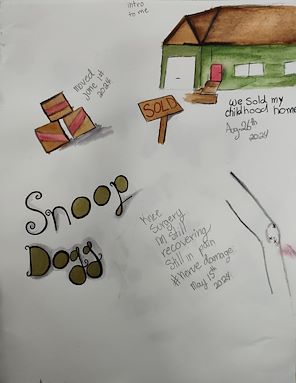 intro
to me
moved
June 1st
2024
SOLD
we sold my
childhood home
Aug 26th
2024
Snoop
Dogg
Knee
Surgery
I'm still
recovering
Still in pain
#nerve damage
May 15th
2024